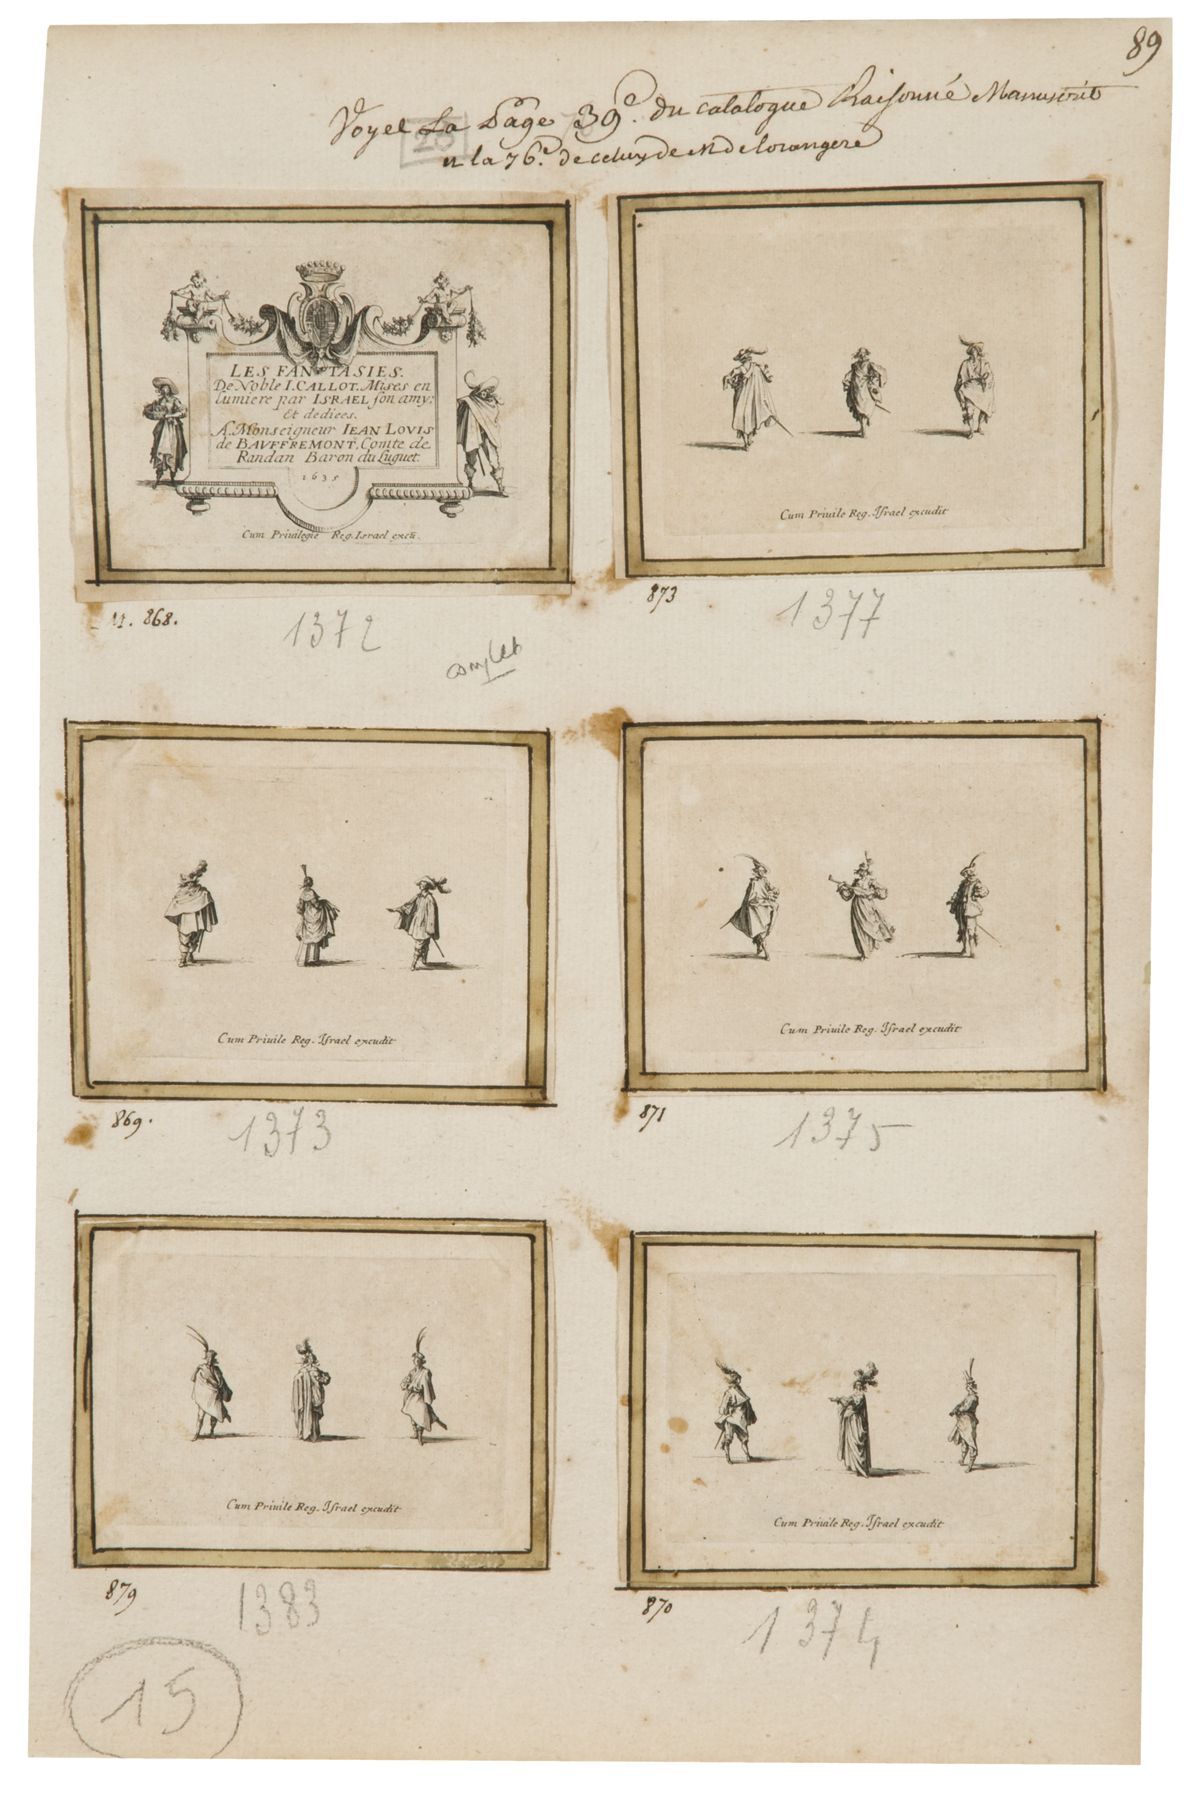 89
Voyez La Page 39e. du catalogue Raisonné Manuscrit
et la 76e. de celuy de Mr de lorangere
25
LES FANTASIES.
De Noble I. CALLOT. Mises en
lumiere par ISRAEL son amy;
Et dediees.
A Monseigneur IEAN LOVIS
de BAVFFREMONT, Comte de
Randan Baron du Luguet.
1635
Cum Privilegie Reg. Israel excu.
868.
1372
complet
Cum Priuile Reg. Israel excudit
873
1377
Cum Priuile Reg. Israel excudit
869.
1373
Cum Priuile Reg. Israel excudit
871
1375
Cum Priuile Reg. Israel excudit
879
1383
Cum Priuile Reg. Israel excudit
870
1374
15